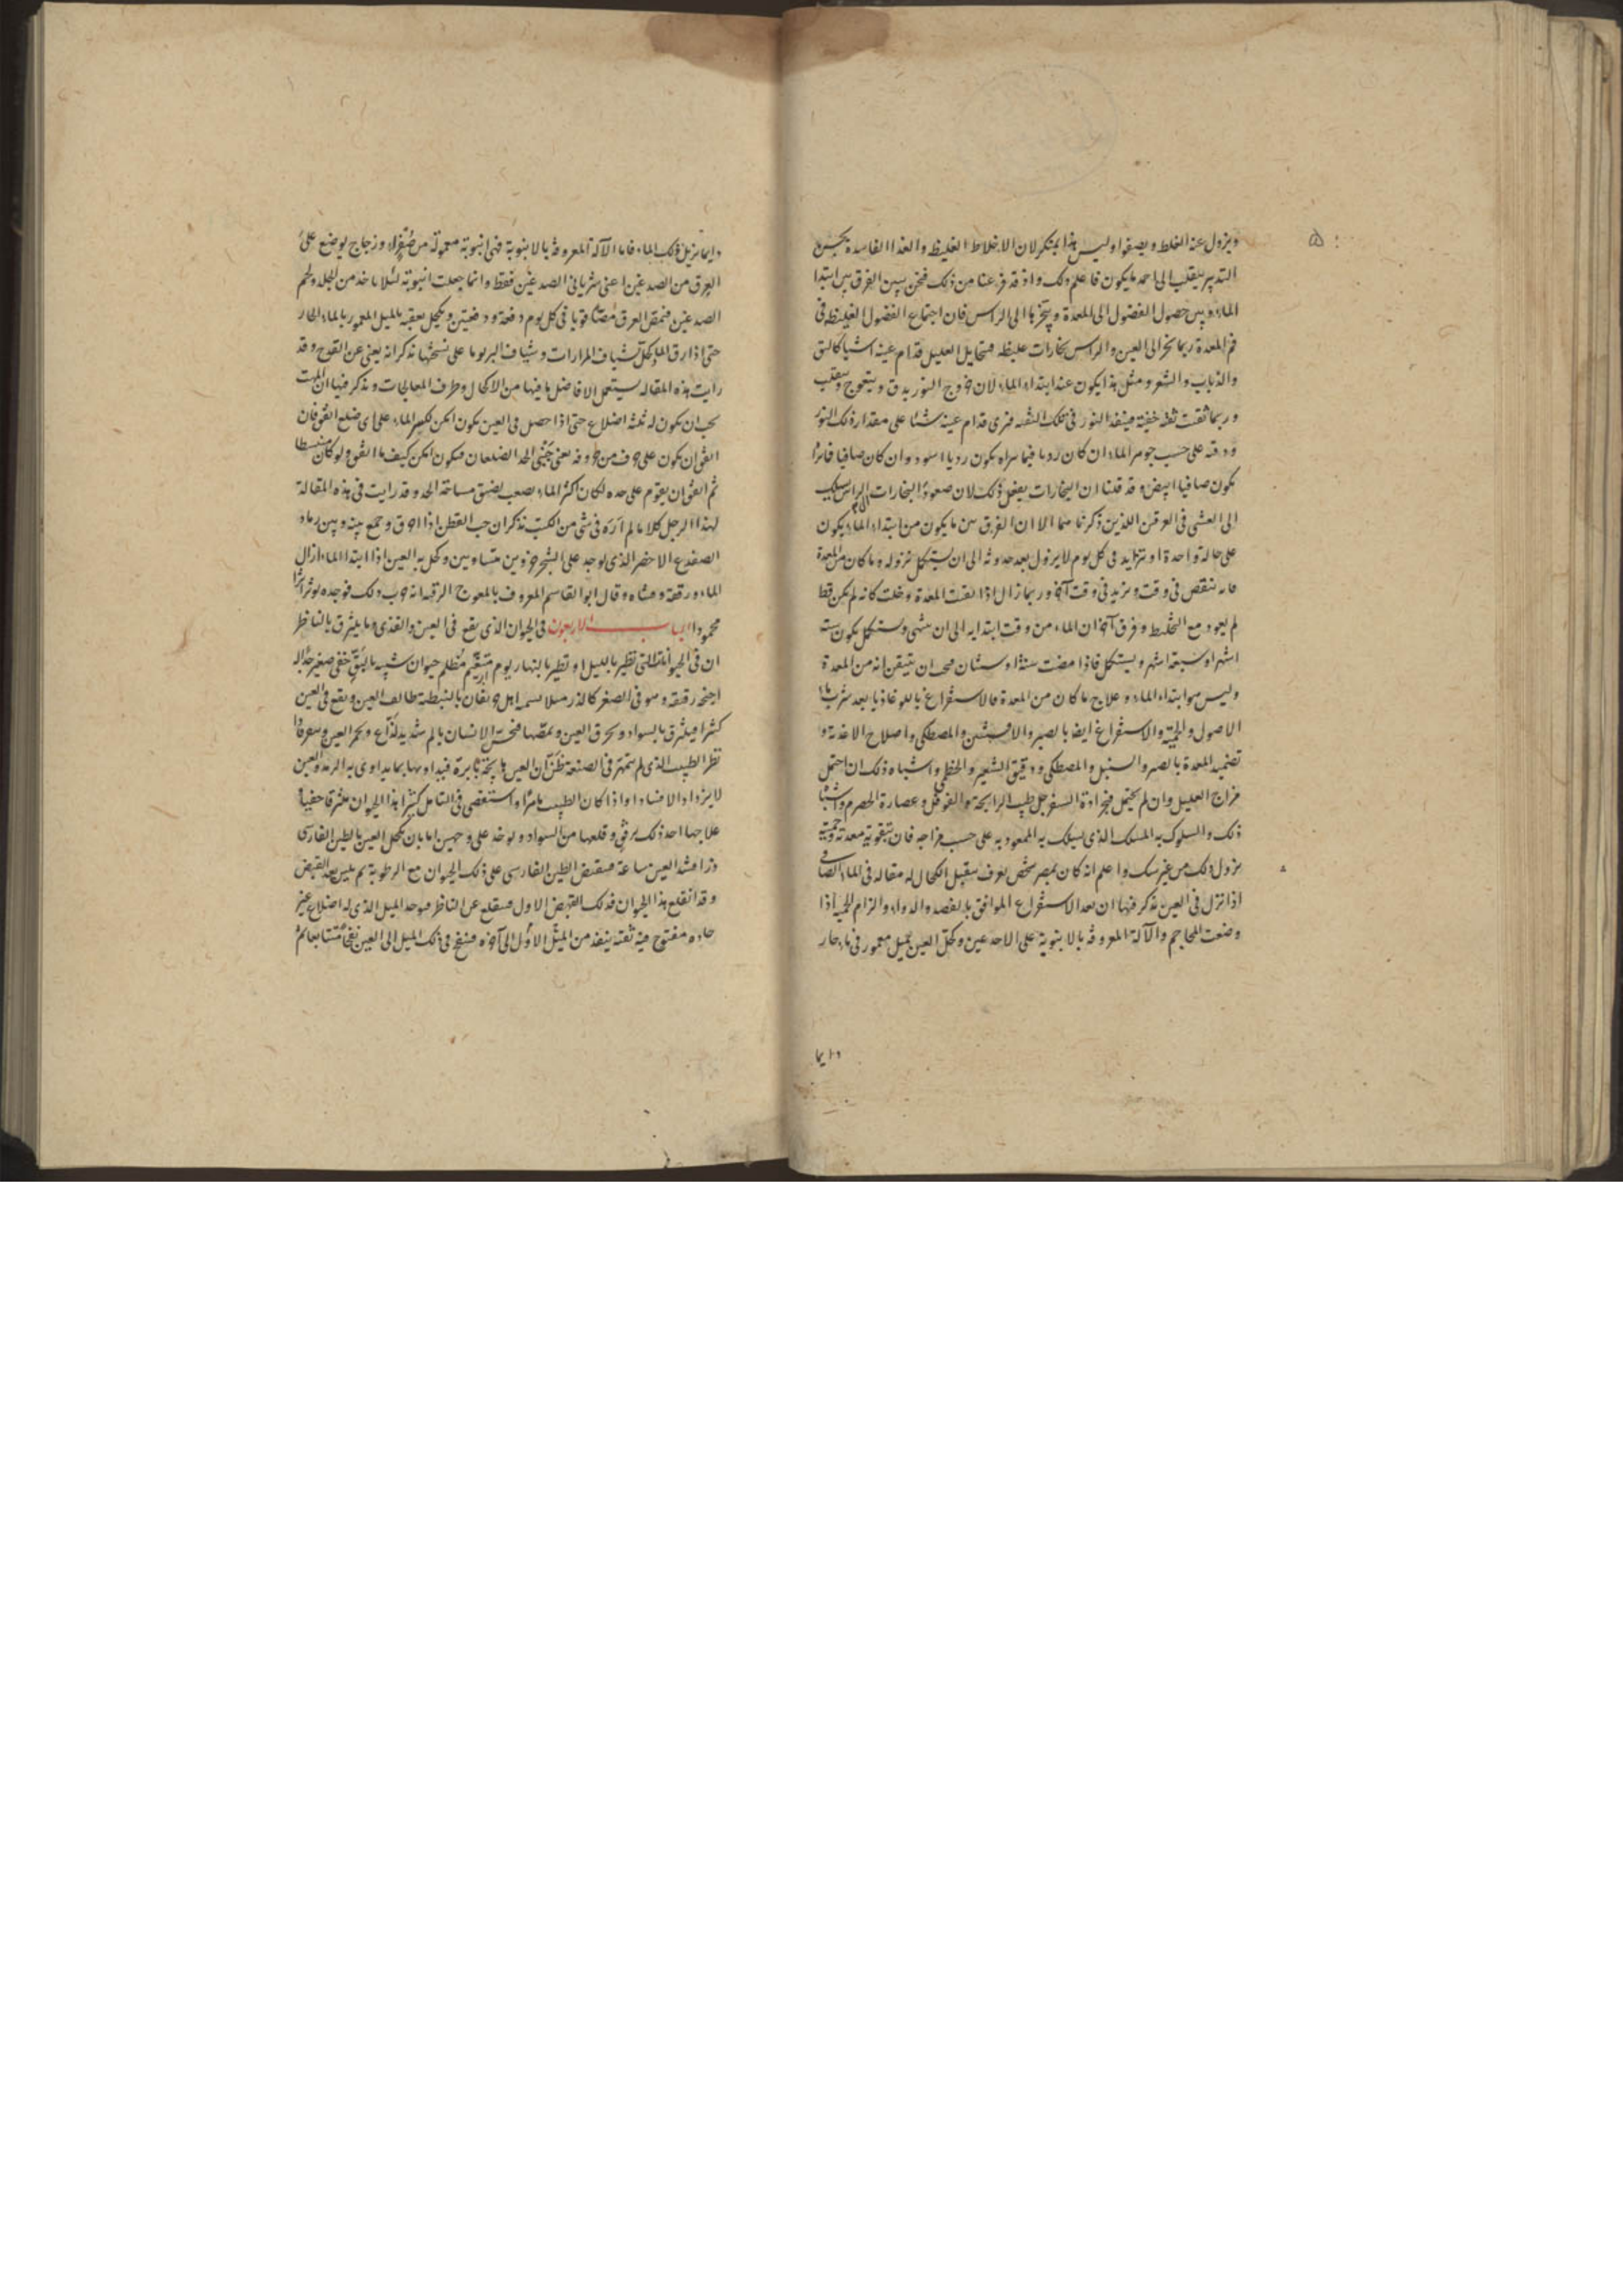 ويزول عنه الغلط ويصفوا وليس هذا بمنكر لان الاخلاط الغليظ والغذا الفاسد بحسن
التدبير ينقلب الى احمد ما يكون فاعلم ذلك واذ قد فرغنا من ذلك فنحن نبين الفرق بين ابتدا
الماء وبين حصول الفضول الى المعدة وبتخرها الى الراس فان اجتماع الفضول الغليظه فى
فم المعدة ربما بخر الى العين والراس بخارات غليظه فتخايل العليل قدام عينه اشيا كالبق
والذباب والشعر ومثل هذا يكون عند ابتداء الماء لان خروج النور يدق ويتعوج وينقلب
وربما ثقبت ثقبه خفية فينفذ النور فى تلك الثقبه فنرى قدام عينه شئا على مقدار ذلك النور
ودقته على حسب جوهر الماء ان كان رديا فيما يراه يكون رديا اسود وان كان صافيا فانما
يكون صافيا ابيض وقد قلنا ان البخارات يفعل ذلك لان صعود البخارات الى الراس
الى العشى فى العرقين اللذين ذكرناهما الا ان الفرق بين ما يكون من ابتداء الماء يكون
على حالة واحدة او يتزايد فى كل يوم لا يزول بعد حدوثه الى ان يستكمل نزوله وما كان من المعدة
فانه ينقص فى وقت ويزيد فى وقت آخر وربما زال اذا نقيت المعدة وخلت كانه لم يكن قط
ثم يعود مع التخليط وفرق آخر ان الماء من وقت ابتدايه الى ان ينتهى ويستكمل يكون ستة
اشهر او سبعة اشهر ويستكمل فاذا مضت سنة او سنتان فيجب ان يتيقن انه من المعدة
وليس هو ابتداء الماء وعلاج ما كان من المعدة فالاستفراغ بالوغاذيا بعد شرب ماء
الاصول والحمية والاستفراغ ايضا بالصبر والافسنتين والمصطكى واصلاح الاغذية و
تضميد المعدة بالصبر والسنبل والمصطكى ودقيق الشعير والخطمى واشباه ذلك ان احتمل
مزاج العليل وان لم يحتمل فبجرادة السفرجل طيب الرايحة والفوفل وعصارة الحصرم واشباه
ذلك والسلوك به المسلك الذى يسلك به الممعود به على حسب مزاجه فان بتقوية معدته وحميته
يزول ذلك من غير شك واعلم انه كان بمصر شخص يعرف بمقبل الكحال له مقاله فى الماء الصافى
اذا نزل فى العين يذكر فيها ان بعد الاستفراغ الموافق بالفصد والدواء والزام الحمية اذا
وضعت المحاجم والآلة المعروفه بالانبوبة على الاخدعين وكحل العين بميل مغمور فى ماء حار
دايما
دايما يزيل ذلك الماء فاما الآلة المعروفه بالانبوبة فهى انبوبة معمولة من صفر او زجاج يوضع على
العرق من الصدغين اعنى شريانى الصدغين فقط وانما جعلت انبوبة لئلا ياخذ من الجلد ولحم
الصدغين فيمص العرق مصا قويا فى كل يوم دفعة ودفعتين ويكحل بعقبه بالميل المغمور بالماء الحار
حتى اذا رق الماء كحل بشياف المرارات وشياف البربوما على نسختها يذكر انه يغنى عن القدح وقد
رايت هذه المقاله يستعمل الافاضل ما فيها من الاكحال وطرف المعالجات ويذكر فيها ان المهت
يجب ان يكون له ثلثه اضلاع حتى اذا حصل فى العين يكون امكن لكسر الماء على اى ضلع اتفق فان
اتفق ان يكون على حرف من حروفه يعنى جنبتى احد الضلعان فيكون امكن كيف ما اتفق ولو كان منبسطا
ثم اتفق ان يقوم على حده لكان اكثر الماء يصعب لضيق مساحة الحد وقد رايت فى هذه المقالة
لهذا الرجل كلاما لم اره فى شئ من الكتب يذكر ان حب القطن اذا احرق وجمع بينه وبين رماد
الضفدع الاخضر الذى يوجد على الشجر جزوين متساويين وكحل به العين اذا ابتدا الماء ازال
الماء ورققه ومشاه وقال ابو القاسم المعروف بالمعوج الرقى انه جرب ذلك فوجده يوثر اثرا
محمودا الباب الاربعون فى الحيوان الذى يقع فى العين والقذى وما يلتزق بالناظر
ان فى الحيوانات التى تطير بالليل او تطير بالنهار يوم متغيم مظلم حيوان شبيه بالبق خفى صغير جدا له
اجنحه رقيقه وهو فى الصغر كالذر مثلا يسميه اهل جوبقان بالنبطية طالف العين ويقع فى العين
كثيرا فيلتزق بالسواد ويحرق العين ويعضها فيحس الانسان بالم شديد لذاع ويحمر العين
نظر الطبيب الذى لم يتمهر فى الصنعة ظن ان العين هايجة ثايرة فيداويها بما يداوى به الرمد والعين
لا يزداد الا فسادا واذا كان الطبيب ماهرا واستقصى فى التامل كثيرا هذا الحيوان ملتزقا خفيا و
علاجها اخذ ذلك برفق وقلعها من السواد ويوخذ على وجهين اما بان يكحل العين بالطين الفارسى
وذا مشد العين ساعة فيقبض الطين الفارسى على ذلك الحيوان مع الرطوبة ثم يلين بعد القبض
وقد انقلع هذا الحيوان فذلك القبض الاول فينقلع عن الناظر فيوخذ الميل الذى له اضلاع غير
حاده مفتوح فيه ثقبه ينفذ من الميل الاول الى آخره فينفخ فى ذلك الميل الى العين نفخا متتابعا ثم